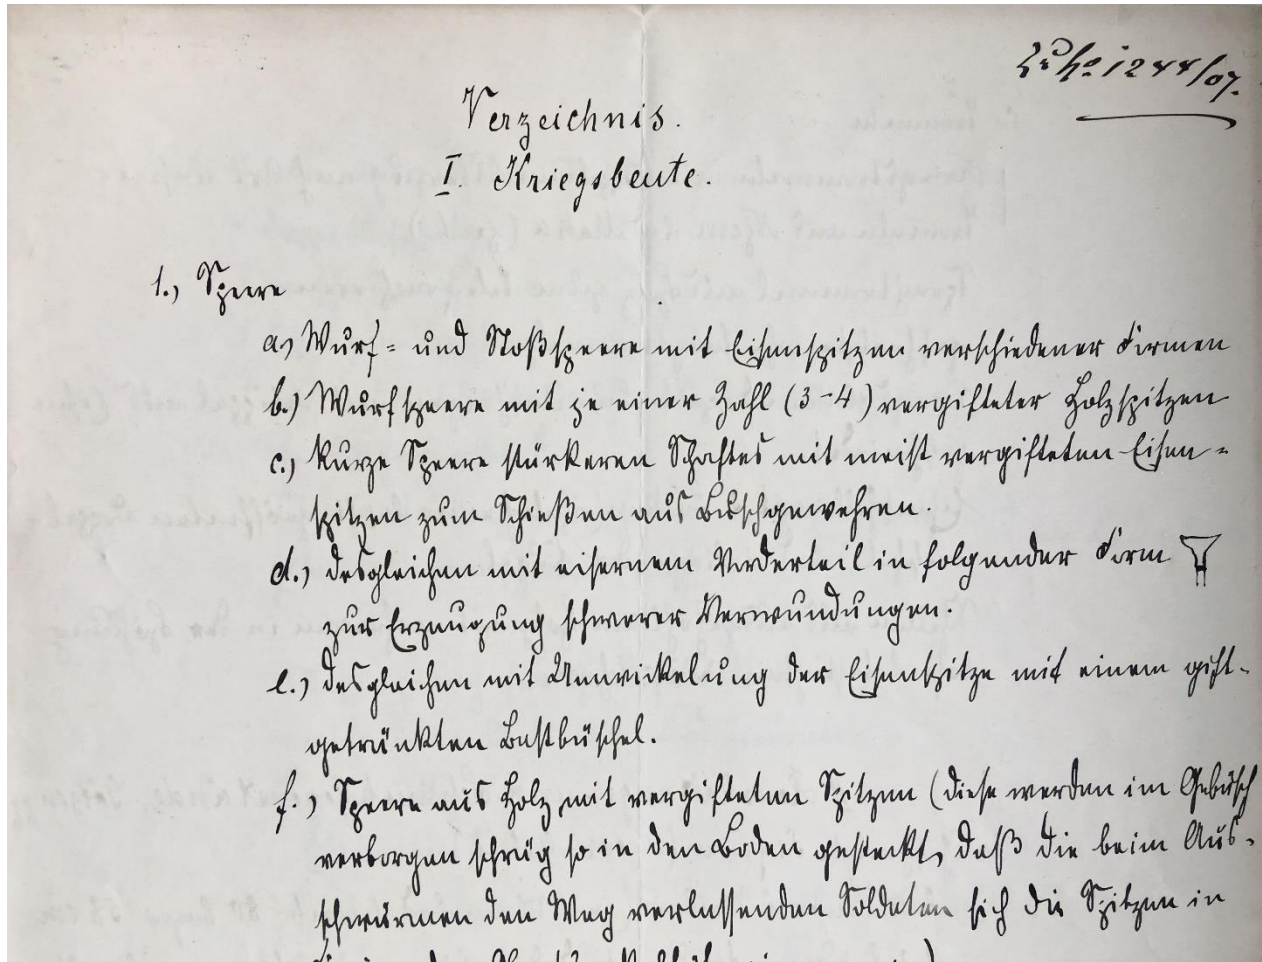 Zu No 1244/07.
Verzeichnis.
I. Kriegsbeute.
1., Speere
a., Wurf- und Stoßspeere mit Eisenspitzen verschiedener Formen
b.) Wurfspeere mit je einer Zahl (3-4) vergifteter Holzspitzen
c., Kurze Speere stärkeren Schaftes mit meist vergifteten Eisen-
spitzen zum Schießen aus Buschgewehren.
d.) desgleichen mit eisernem Vorderteil in folgender Form
zur Erzeugung schwerer Verwundungen.
e.) desgleichen mit Umwickelung der Eisenspitze mit einem gift-
getränkten Bastbüschel.
f.) Speere aus Holz mit vergifteten Spitzen (diese werden im Gebüsch
verborgen schräg so in den Boden gesteckt, daß die beim Aus-
schwärmen den Weg verlassenden Soldaten sich die Spitzen in